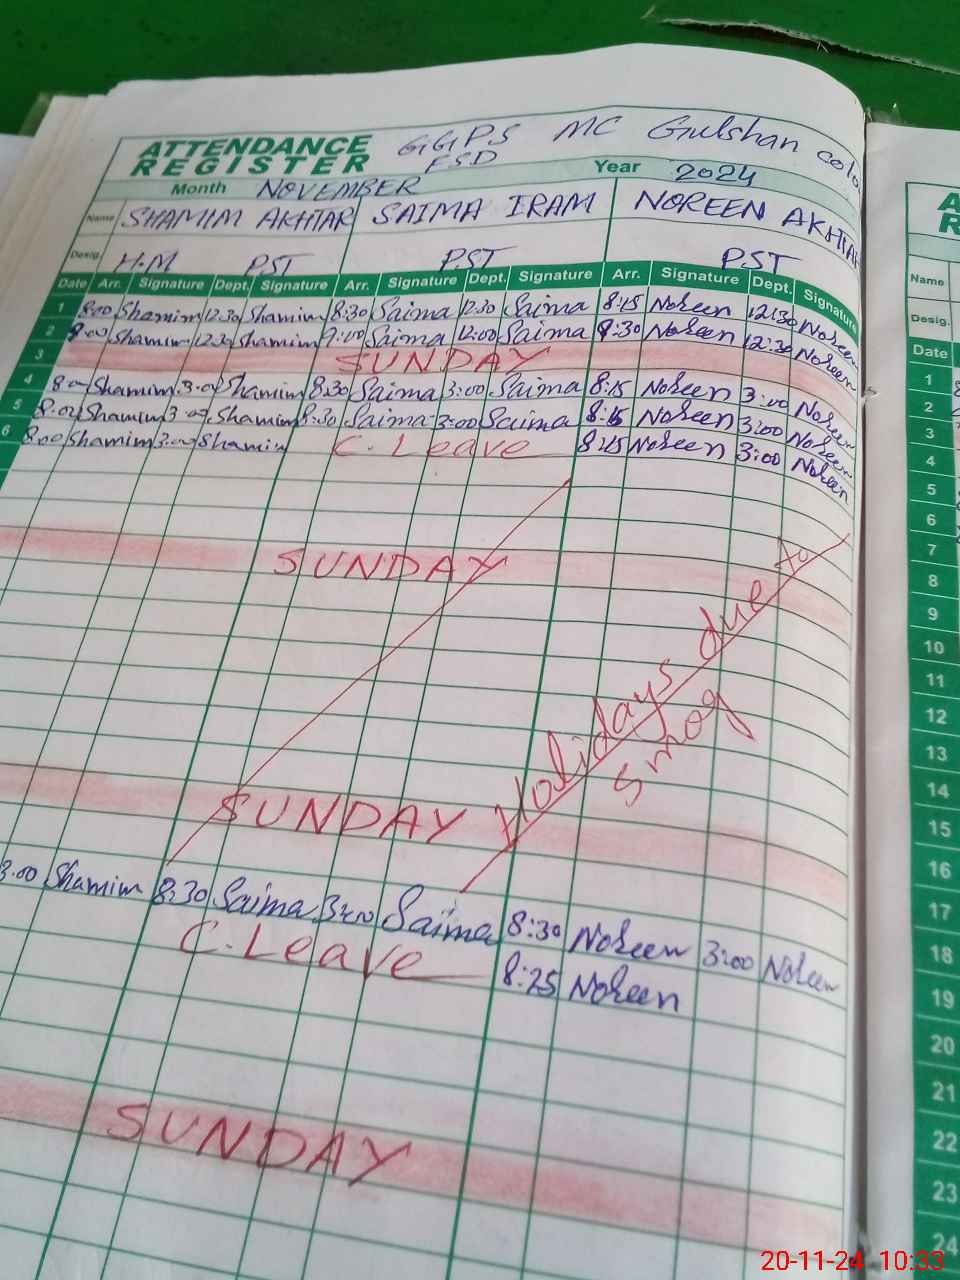 ATTENDANCE REGISTER GGPS MC Gulshan colo
FSD
Month NOVEMBER Year 2024
Name SHAMIM AKHTAR SAIMA IRAM NOREEN AKHTAR
Desig. H.M PST PST PST
Date Arr. Signature Dept. Signature Arr. Signature Dept. Signature Arr. Signature Dept. Signature
1 8:00 Shamim 12.30 Shamim 8:30 Saima 12.30 Saima 8:15 Noreen 12:30 Noreen
2 8:00 Shamim 12.30 Shamim 9:00 Saima 12:00 Saima 8:30 Noreen 12:30 Noreen
3 SUNDAY
4 8:00 Shamim 3:00 Shamim 8:30 Saima 3:00 Saima 8:15 Noreen 3:00 Noreen
5 8:00 Shamim 3:00 Shamim 8:30 Saima 3:00 Saima 8:15 Noreen 3:00 Noreen
6 8:00 Shamim 3:00 Shamim C. Leave 8:15 Noreen 3:00 Noreen
SUNDAY
Holidays due to
smog
SUNDAY
3:00 Shamim 8:30 Saima 3:00 Saima 8:30 Noreen 3:00 Noreen
C. Leave 8:25 Noreen
SUNDAY
Name
Desig.
Date
1
2
3
4
5
6
7
8
9
10
11
12
13
14
15
16
17
18
19
20
21
22
23
24
20-11-24 10:33